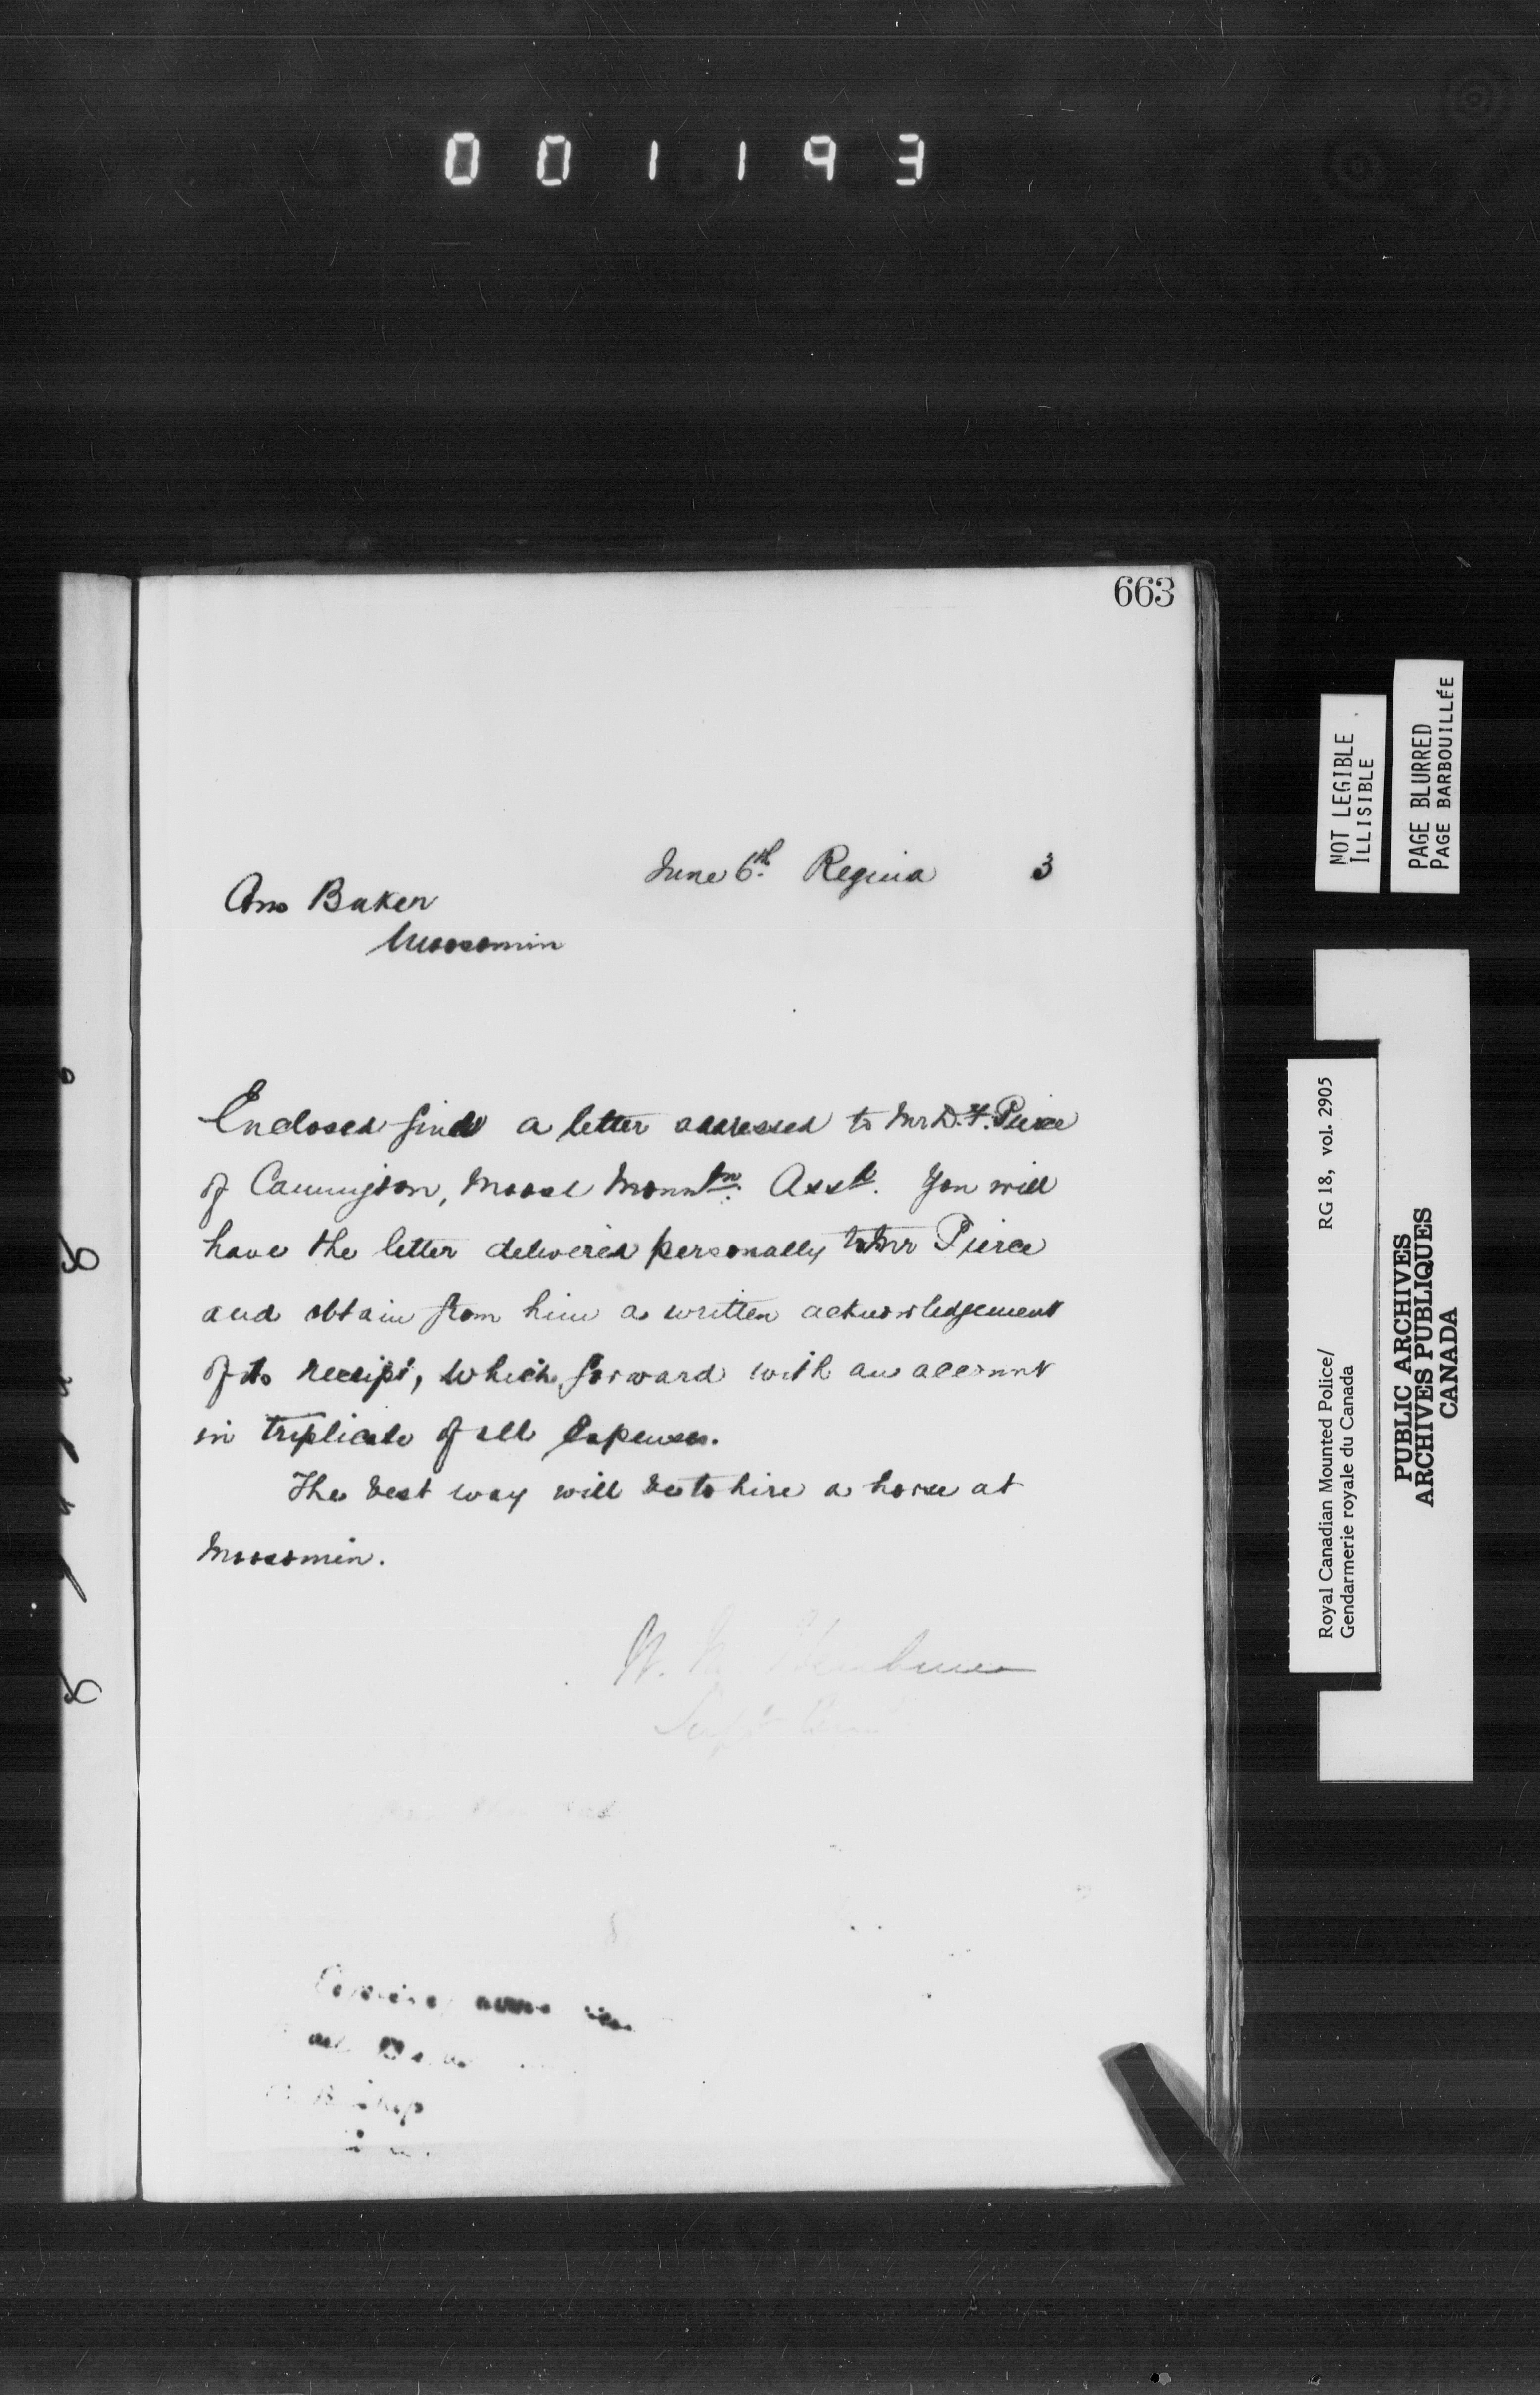 001193
663
June 6th Regina 3
Baker
Moosomin
Enclosed find a letter addressed to Mr D. F. Pierce
of Cannington, Moose Mountn. Assa. You will
have the letter delivered personally to Mr Pierce
and obtain from him a written acknowledgement
of its receipt, which forward with an account
in triplicate of all expenses.
The best way will be to hire a horse at
Moosomin.
W. M. Herchmer
Supt Com
NOT LEGIBLE
ILLISIBLE
PAGE BLURRED
PAGE BARBOUILLÉE
Royal Canadian Mounted Police/ RG 18, vol. 2905
Gendarmerie royale du Canada
PUBLIC ARCHIVES
ARCHIVES PUBLIQUES
CANADA